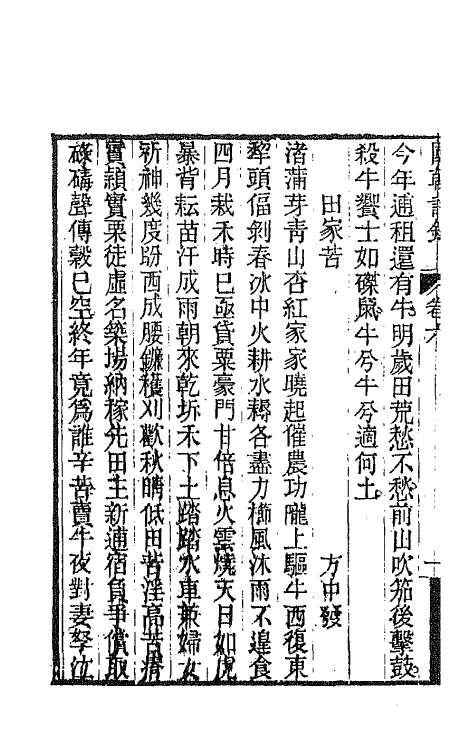 國朝詩鐸 卷六
今年逋租還有牛明歲田荒愁不愁前山吹笳後擊鼓
殺牛饗士如磔鼠牛兮牛兮適何土
田家苦 方中發
渚蒲芽青山杏紅家家曉起催農功隴上驅牛西復東
犂頭偪剝春冰中火耕水耨各盡力櫛風沐雨不遑食
四月栽禾時已亟貸粟豪門甘倍息火雲燒天日如虎
暴背耘苗汗成雨朝來乾坼禾下土踏踏水車兼婦女
祈神幾度盼西成腰鐮穫刈歡秋晴低田苦淫高苦瘠
實穎實栗徒虛名築場納稼先田主新逋宿負爭償取
碌碡聲傳榖已空終年竟爲誰辛苦賣牛夜對妻孥泣